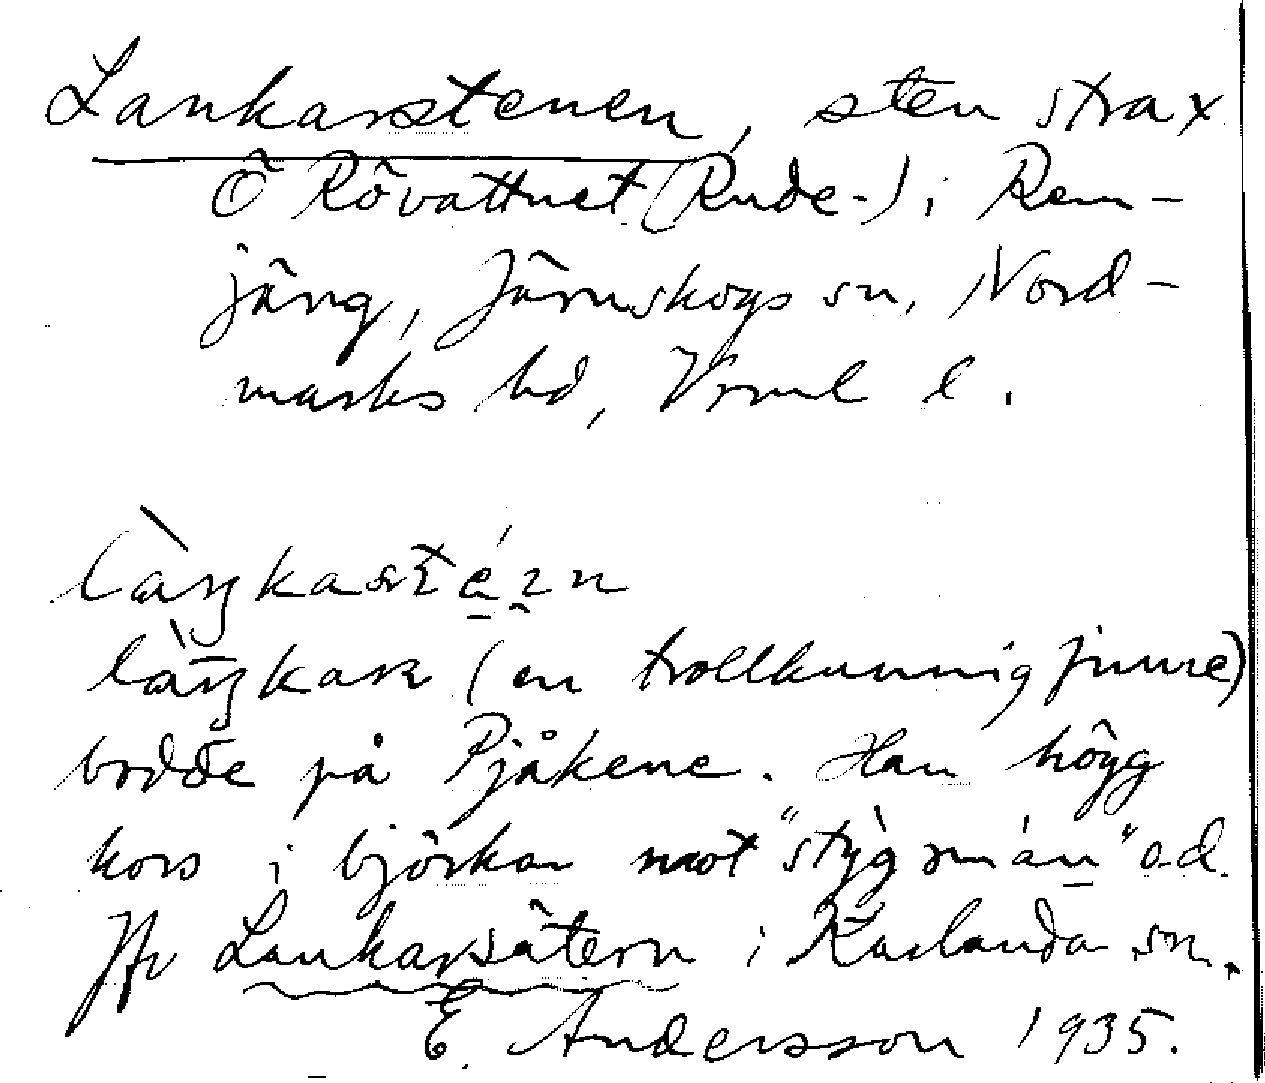 Lankarstenen, sten strax
Ö Rövattnet (Rude-) i Ren-
jäng, Järnskogs sn, Nord-
marks hd, Vrml l.
làŋkastén
làŋkar (en trollkunnig finne)
bodde på Pjåkene. Han högg
kors i björkar mot "stỳgmán" o.d.
Jfr Lankarsätern i Karlanda sn.
E. Andersson 1935.